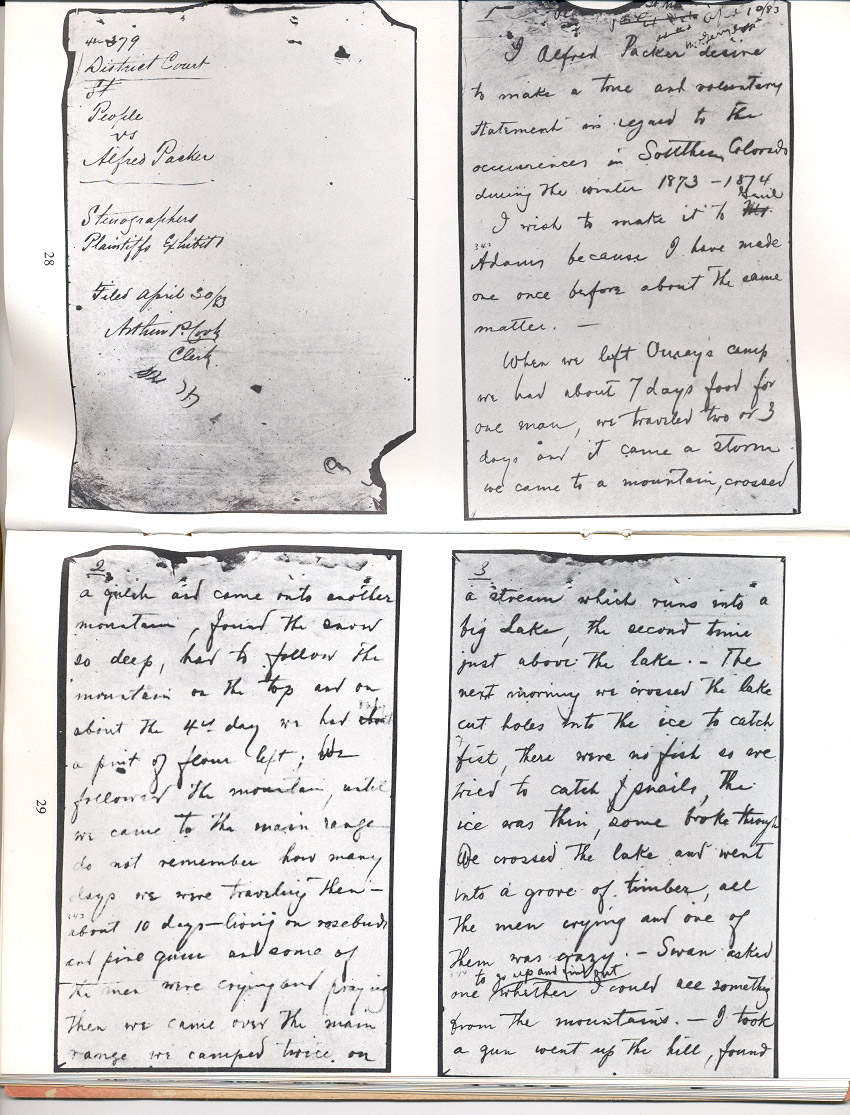 379
District Court
People
vs
Alfred Packer
Stenographers
Plaintiffs Exhibit
Filed April 30/83
Arthur P. Cook
Clerk
28
I Alfred Packer desire
to make a true and voluntary
statement in regard to the
occurrences in Southern Colorado
during the winter 1873-1874
I wish to make it to
Adams because I have made
one once before about the same
matter. —
When we left Ouray's camp
we had about 7 days food for
one man, we traveled two or 3
days and it came a storm
we came to a mountain, crossed
2
a gulch and came onto another
mountain, found the snow
so deep, had to follow the
mountain on the top and on
about the 4th day we had
a pint of flour left; We
followed the mountain, until
we came to the main range
do not remember how many
days we were traveling then —
about 10 days — living on rosebuds
and pine gum and some of
the men were crying and praying
Then we came over the main
range we camped twice on
29
3
a stream which runs into a
big Lake, the second time
just above the lake. — The
next morning we crossed the lake
cut holes into the ice to catch
fist, there were no fish so we
tried to catch snails, the
ice was thin, some broke through
We crossed the lake and went
into a grove of timber, all
the men crying and one of
them was crazy. — Swan asked
to up and find out
me whether I could see something
from the mountains. — I took
a gun went up the hill, found